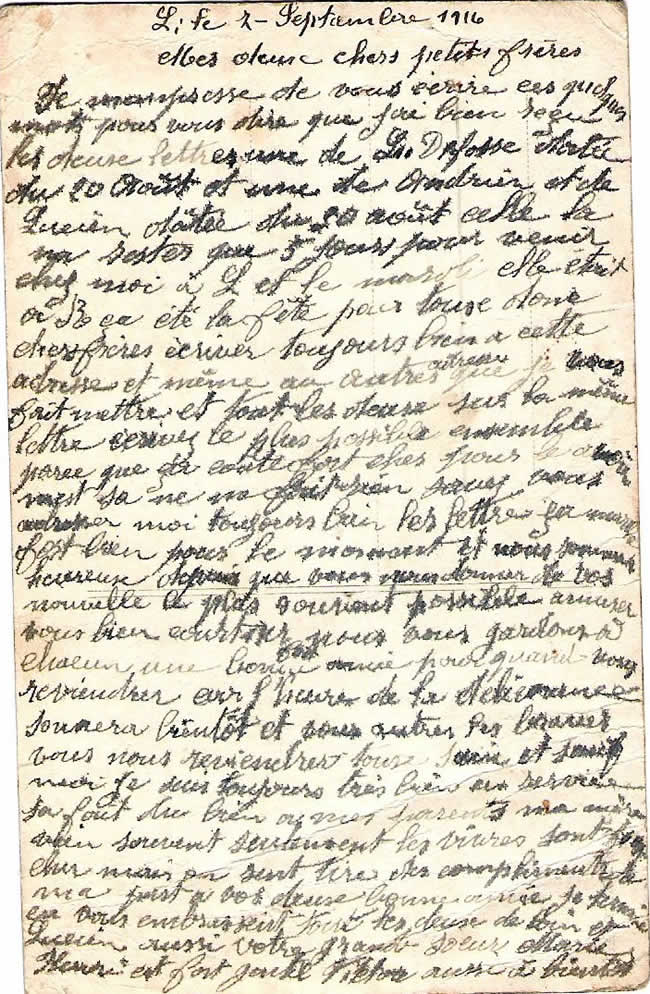 L, le 2 - Septembre 1916
Mes deux chers petits frères
Je m'empresse de vous écrire ces quelques
mots pour vous dire que j'ai bien reçu
les deuse lettres une de L. Defosse datée
du 20 Août et une de Andrien et de
Lucien dâtée du 20 août celle la
na restes que 5 jours pour venir
chez moi à L et le mardi elle était
à R ça été la fête pour touse donc
chers frères écriver toujours bien a cette
adresse et même au autres adresse que je vous
fait mettre et tout les deuse sur la même
lettre ecrivez le plus possible ensemble
parce que ça coute fort cher pour le avoir
mest sa ne na fait rien sauf vous
moi toujours bien les lettre ça marche
fort bien pour le moment et nous sommes
heureuse depuis que vous nous donner de vos
nouvelle le plus souvent possible amuser
vous bien nous vous gardons à
chacun une bonne amie pour quand vous
reviendrer car l'heure de la délivrance
sonnera bientôt et vous autres les braves
vous nous reviendrer touse sain et sauf
moi je suis toujours très bien en service
sa fait du bien a mes parents ma mère
vien souvent seulement les vivres sont fort
cher mais on sent tire des compliments de
ma part a vos deuse bonne amie je termine
en vous embrassent tout les deuse de loin et
Lucien aussi votre grande soeur Marie
Henri est fort gentil Victor aussi à bientôt